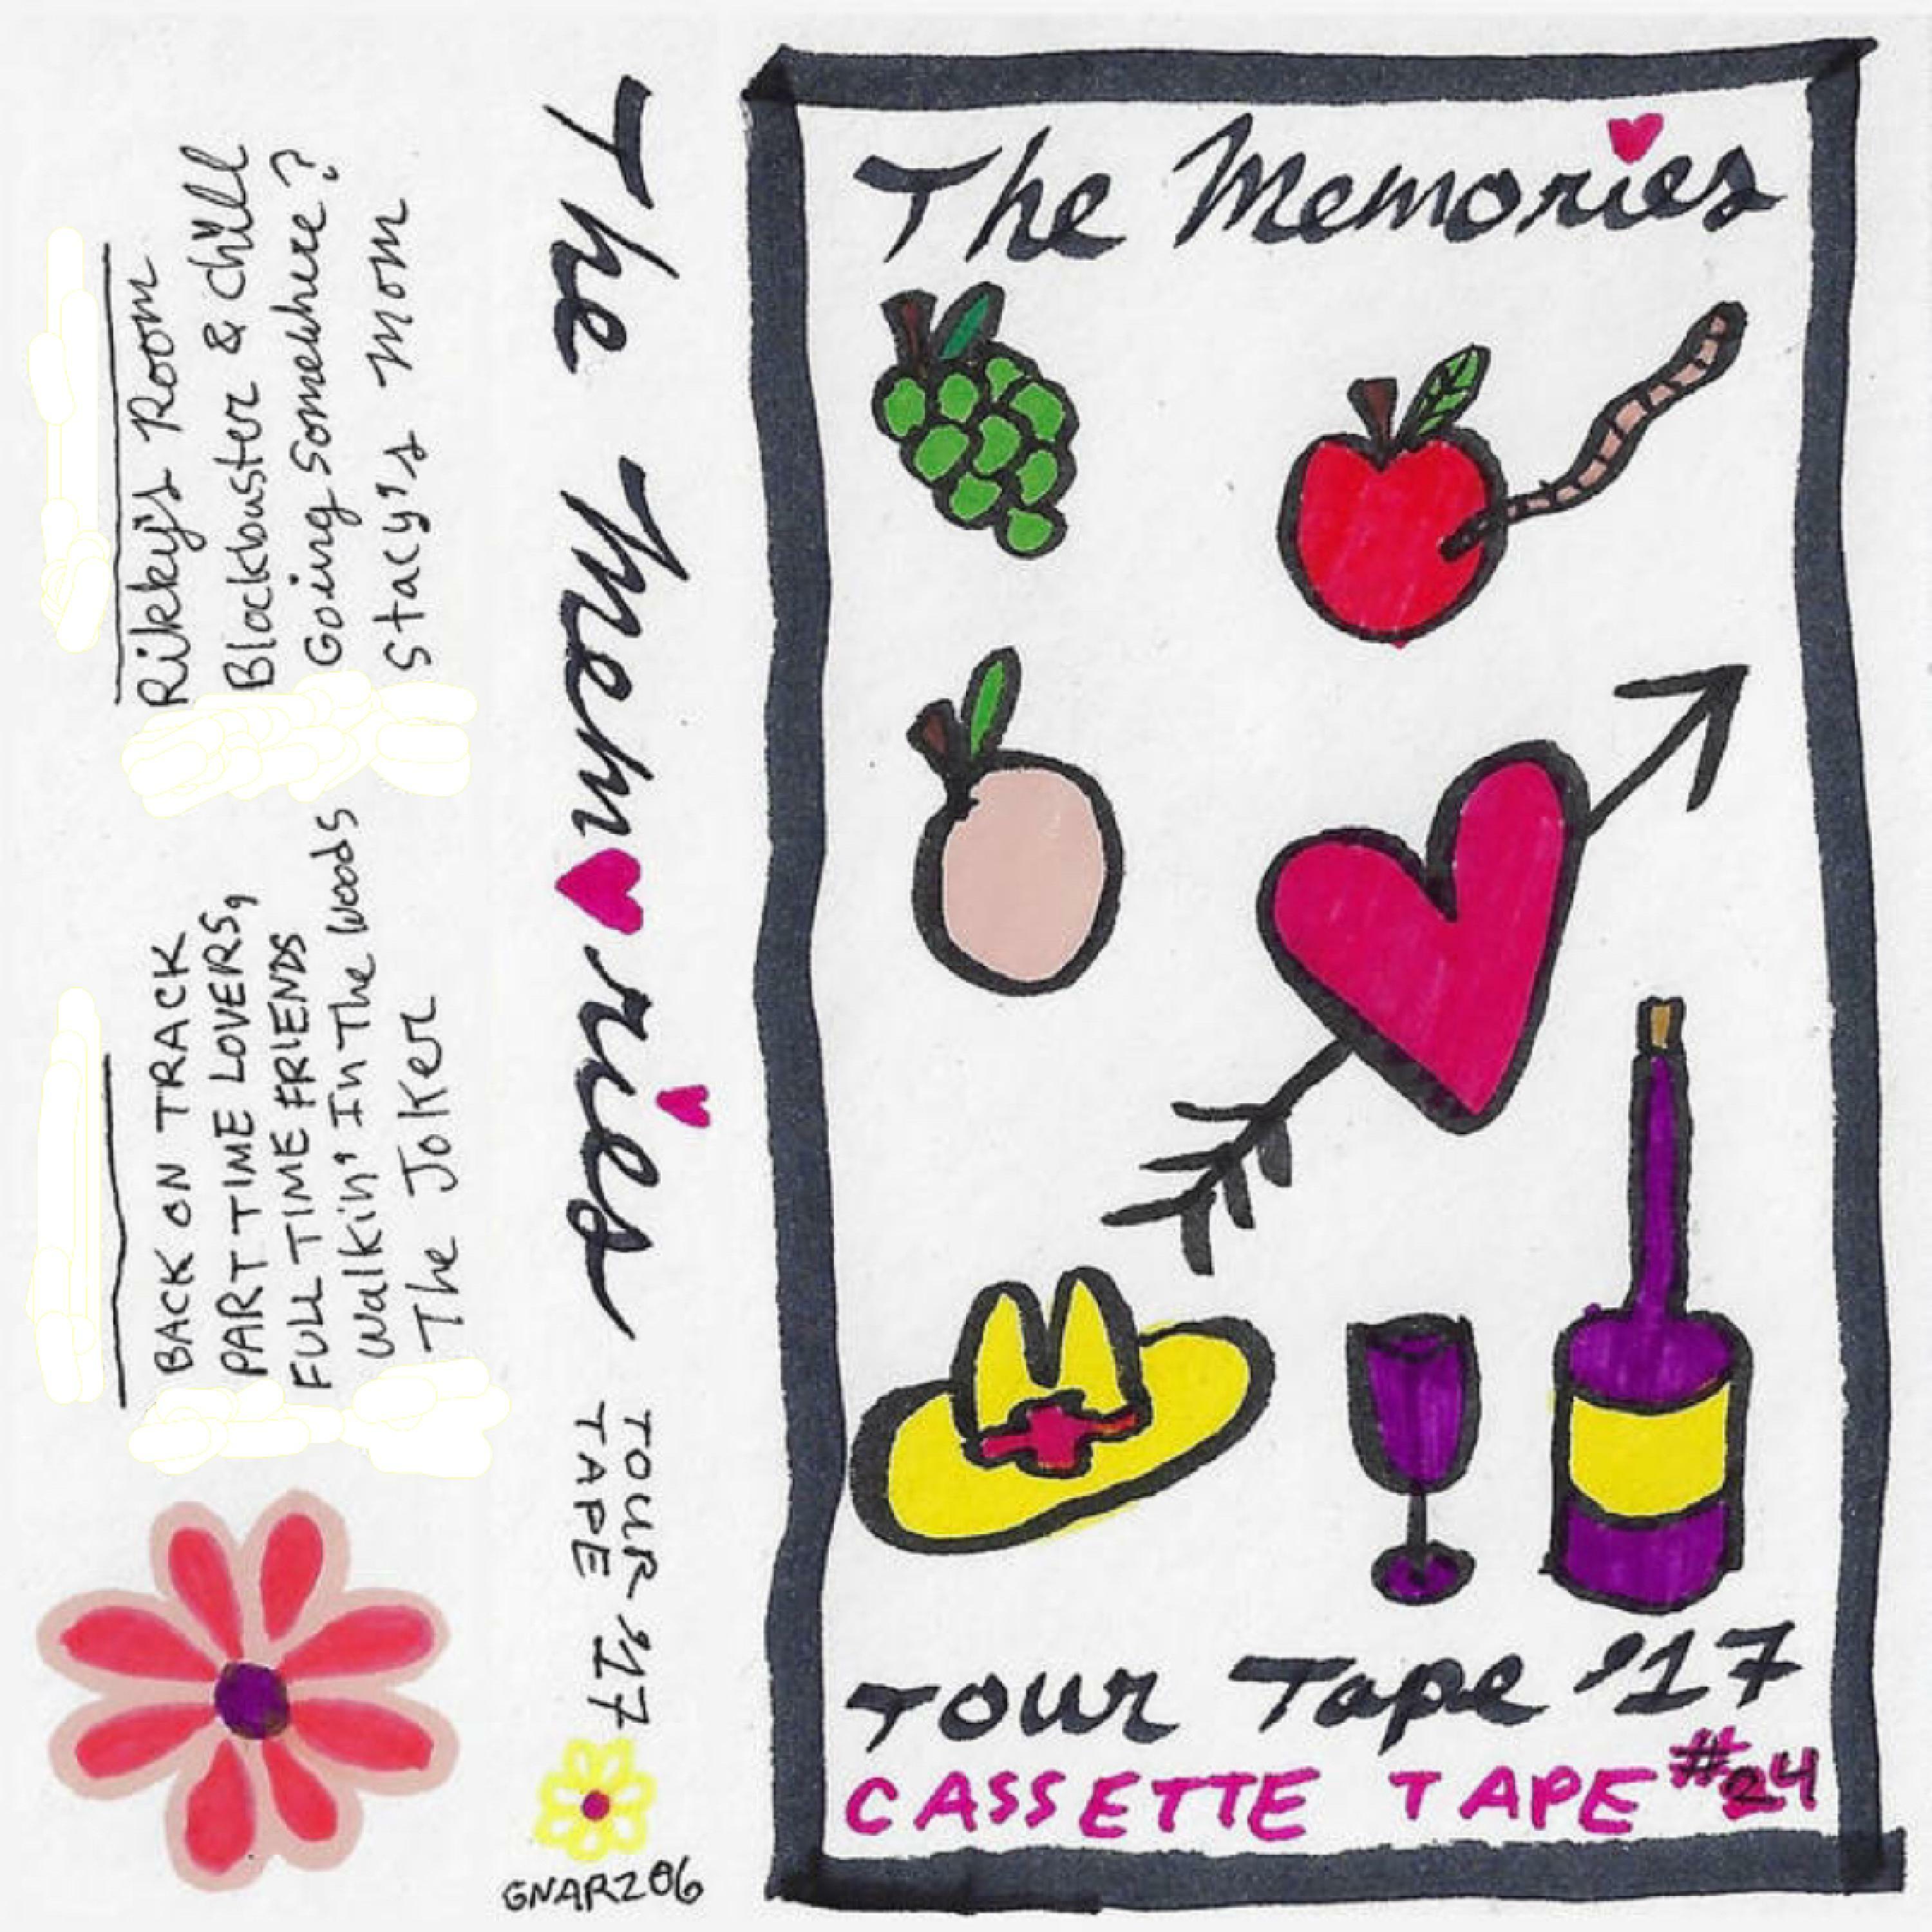 The Memories
Tour Tape '17
CASSETTE TAPE #24
The Memries
TOUR '17
TAPE
GNAR206
Rikky's Room
Blockbuster & chill
Going Somewhere?
Stacy's Mom
BACK ON TRACK
PART TIME LOVERS,
FULL TIME FRIENDS
Walkin' In The Woods
The Joker